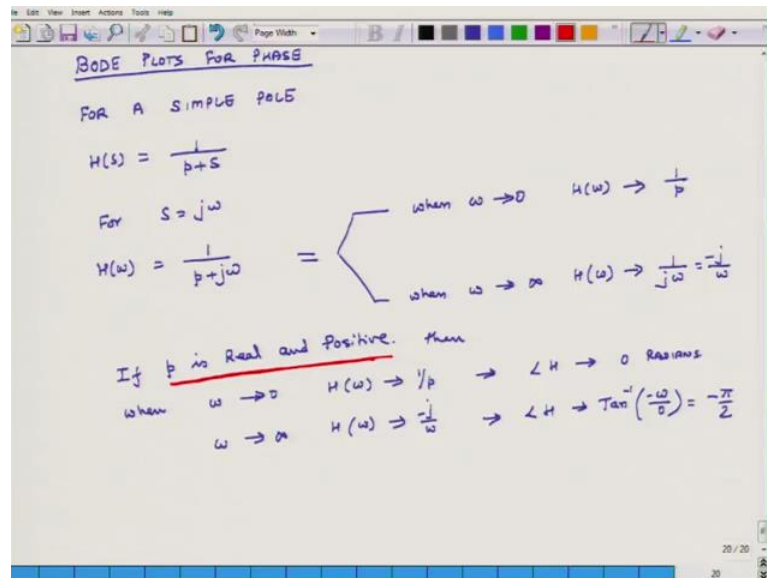 File Edit View Insert Actions Tools Help
Page Width
B I
BODE PLOTS FOR PHASE
FOR A SIMPLE POLE
H(S) = 1/(p+S)
For S = jω
H(ω) = 1/(p+jω) =
when ω → 0 H(ω) → 1/p
when ω → ∞ H(ω) → 1/jω = -j/ω
If p is Real and Positive. then
when ω → 0 H(ω) → 1/p → ∠H → 0 RADIANS
ω → ∞ H(ω) → -j/ω → ∠H → Tan⁻¹(-ω/0) = -π/2
20 / 20
20